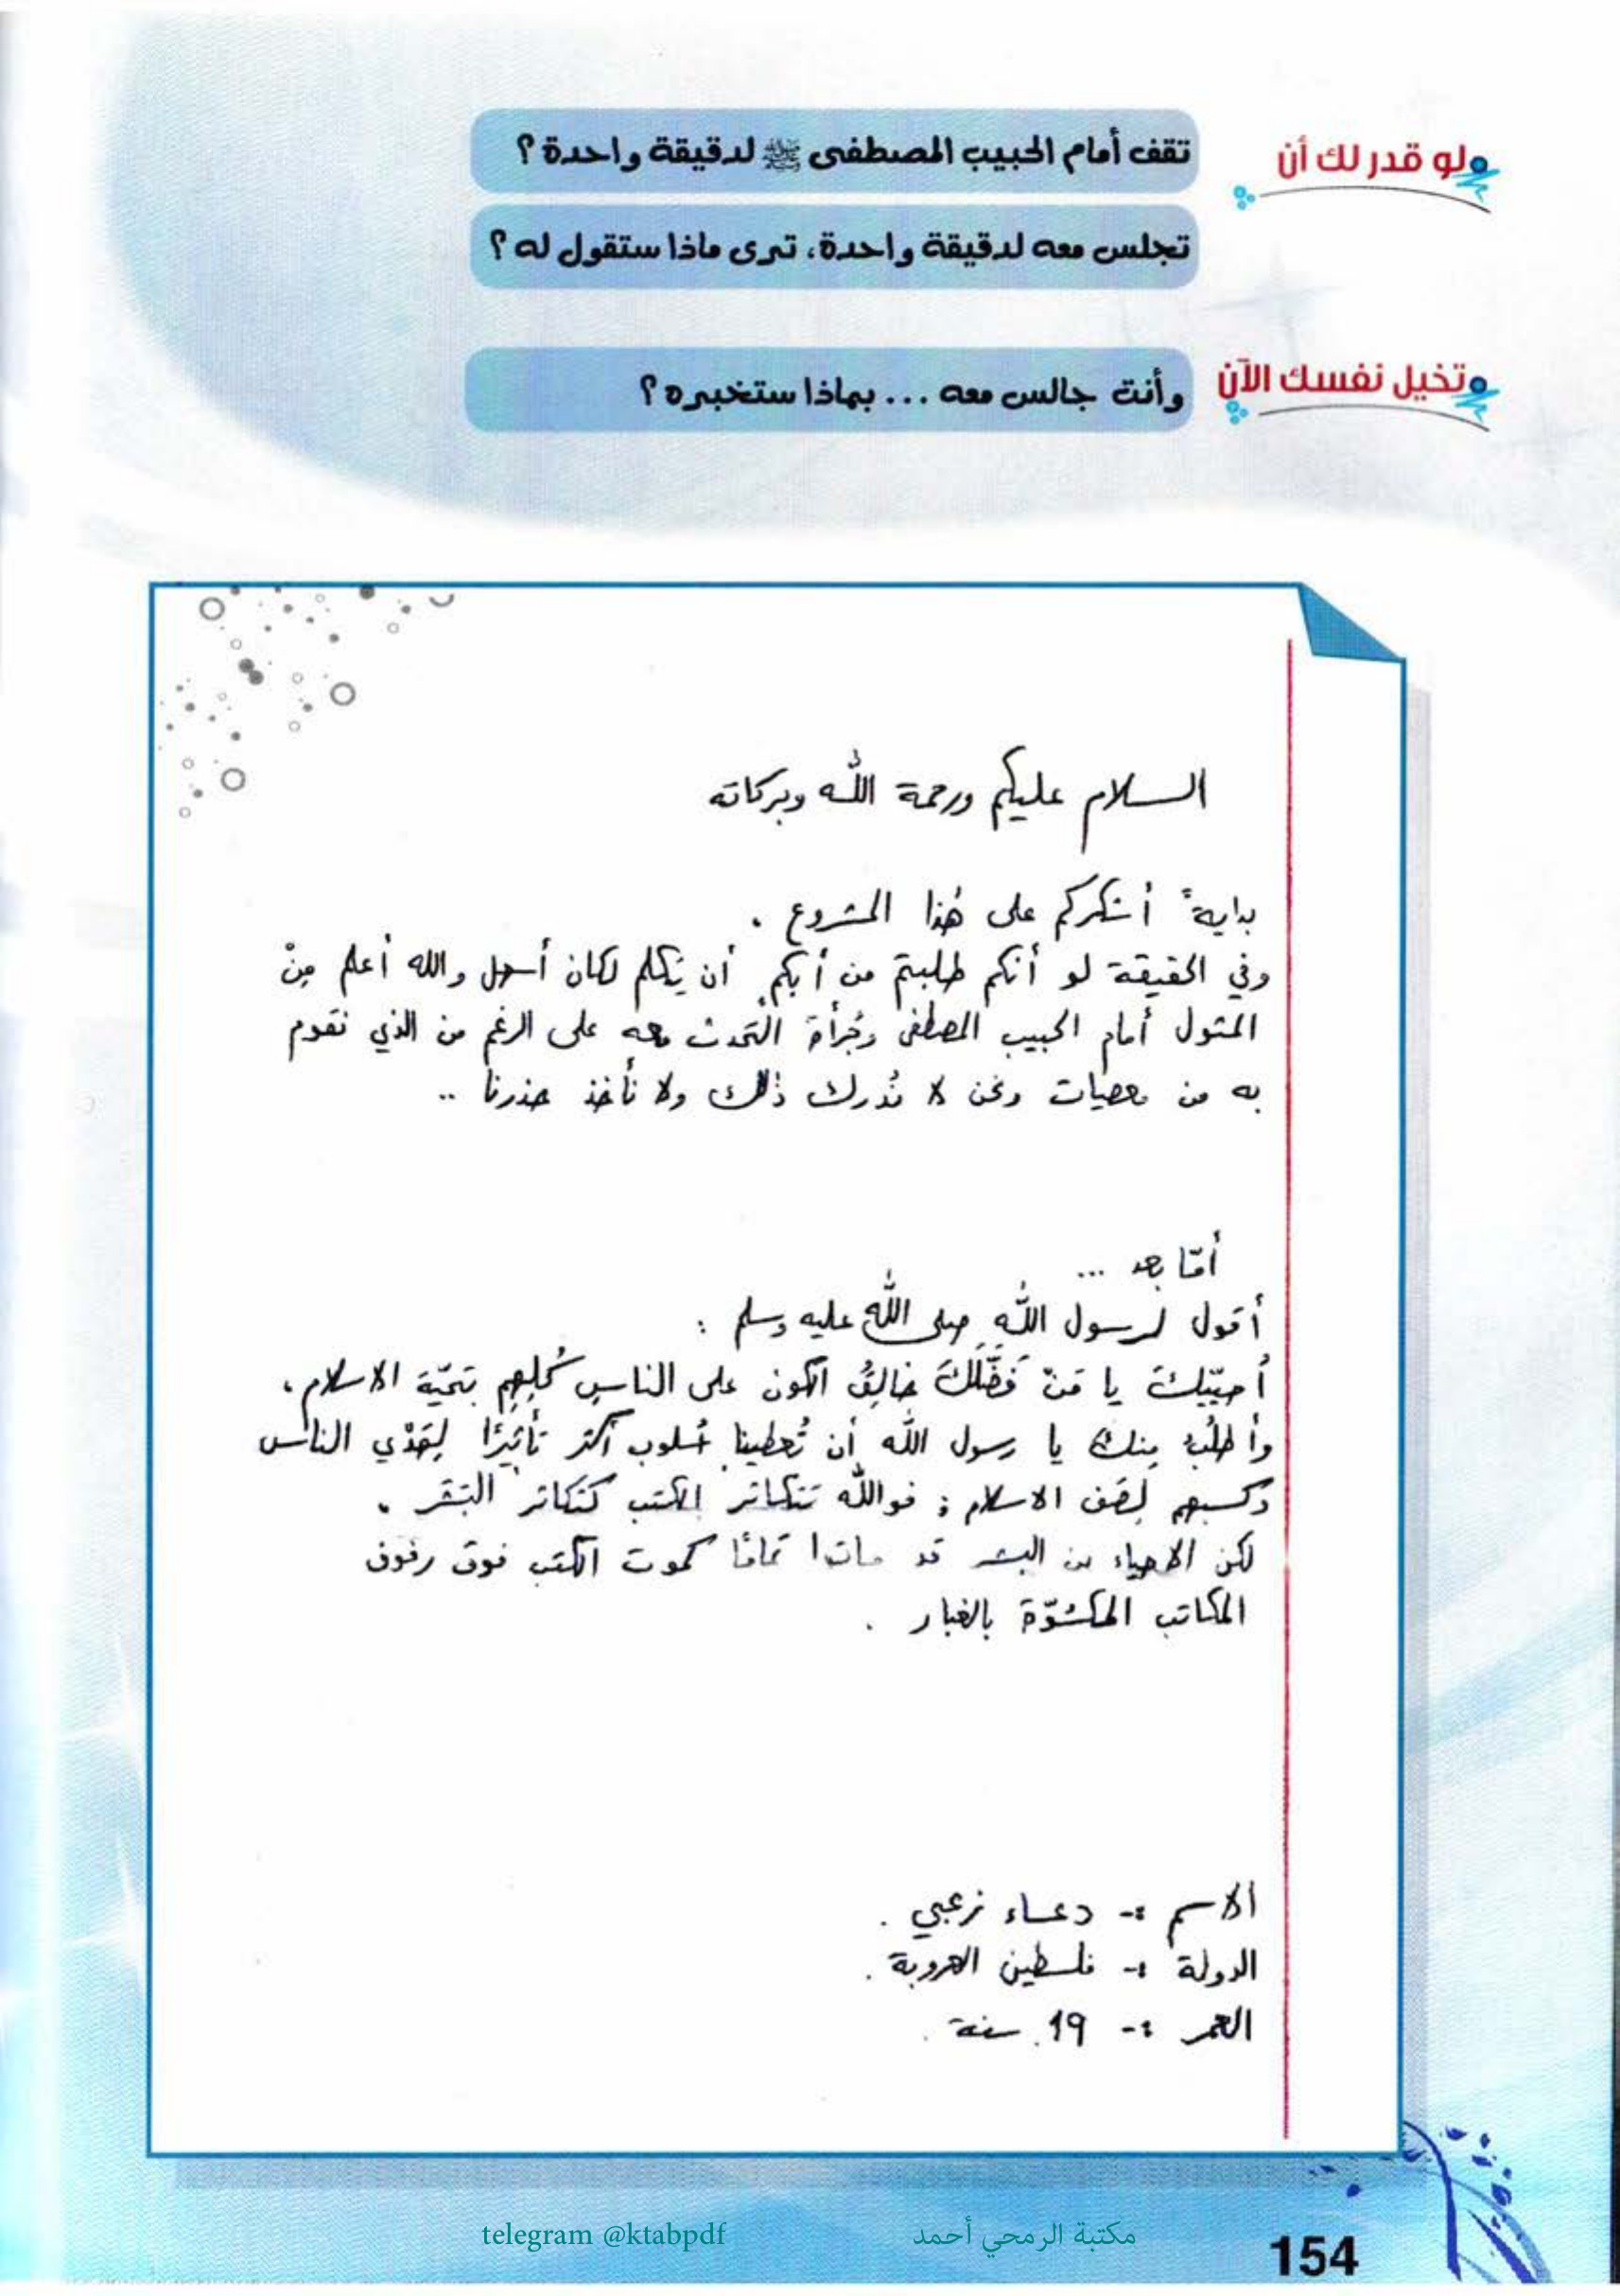 لو قدر لك أن
تقف أمام الحبيب المصطفى ﷺ لدقيقة واحدة ؟
تجلس معه لدقيقة واحدة، ترى ماذا ستقول له ؟
تخيل نفسك الآن
وأنت جالس معه ... بماذا ستخبره ؟
السلام عليكم ورحمة الله وبركاته
بدايةً أشكركم على هٰذا المشروع .
وفي الحقيقة لو أنكم طلبتم من أبكم أن يتكلم لكان أسهل والله أعلم مِنْ
المثول أمام الحبيب المصطفى وجُرأة التحدث معه على الرغم من الذي نقوم
به من معصيات ونحن لا نُدرك ذٰلك ولا نأخذ حذرنا ..
أمّا بعد ...
أقول لرسول الله صلى الله عليه وسلم :
أُحيّيكَ يا مَنْ فَضَّلَكَ خالِقُ الكون على الناسِ كُلِهِم بتحيّة الاسلام ،
وأطلُبُ مِنكَ يا رسول الله أن تُعطينا أسلوب أكثر تأثيرًا لِهَدْي الناس
وكسبهم لِصَف الاسلام ; فوالله تتكاثر الكتب كتكاثر البشر .
لكن الاحياء من البشر قد ماتوا تمامًا كموت الكتب فوق رفوف
المكاتب المكسُوّة بالغبار .
ألاسم :- دعاء زعبي .
الدولة :- فلسطين العروبة .
العمر :- 19 سنة .
telegram @ktabpdf
مكتبة الرمحي أحمد
154